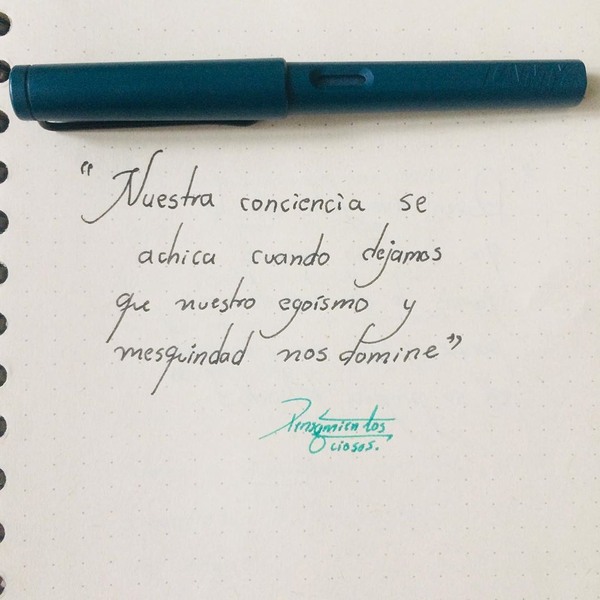 LAMY
"Nuestra conciencia se
achica cuando dejamos
que nuestro egoísmo y
mesquindad nos domine"
Pensamientos
Ociosos.